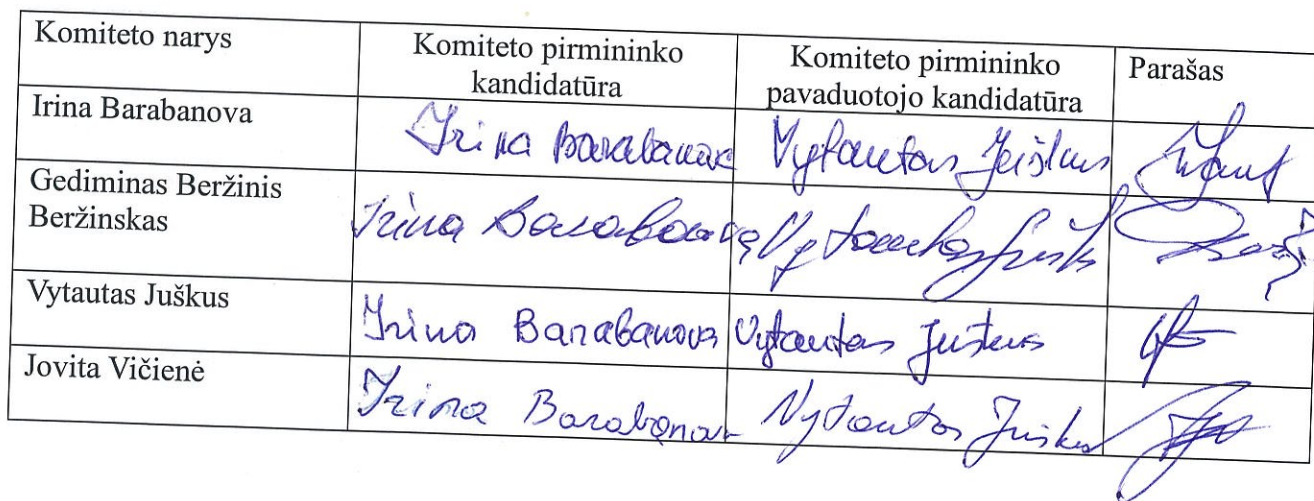 Komiteto narys
Komiteto pirmininko
kandidatūra
Komiteto pirmininko
pavaduotojo kandidatūra
Parašas
Irina Barabanova
Irina Barabanova
Vytautas Juškus
Gediminas Beržinis
Beržinskas
Irina Barabanova
Vytautas Jušk
Vytautas Juškus
Irina Barabanova
Vytautas Juškus
Jovita Vičienė
Irina Barabanov
Vytautas Juškus